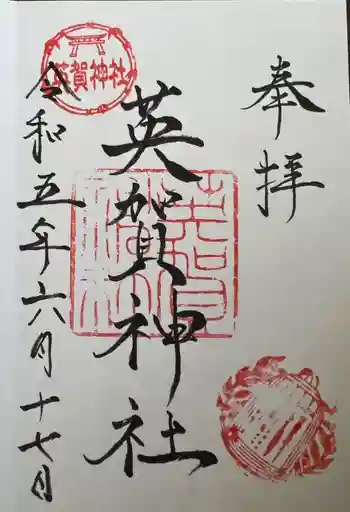 奉拝
英賀神社
英賀神社
令和五年六月十七日
英賀神社